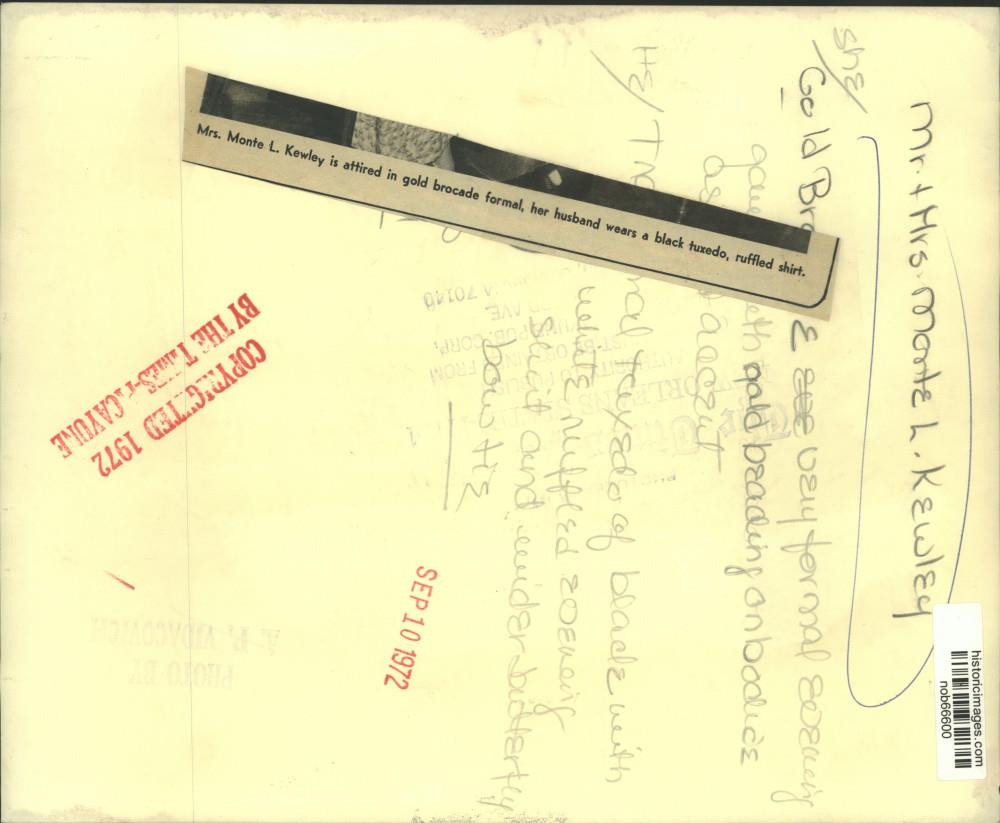 Mr. + Mrs. Monte L. Kewley
SHE/
Gold Bro E very formal evening
with gold beading on bodice
as accent
HE/ Tra nal tuxedo of black with
white ruffled evening
shirt and wider butterfly
bow tiE
Mrs. Monte L. Kewley is attired in gold brocade formal, her husband wears a black tuxedo, ruffled shirt.
COPYRIGHTED 1972
BY THE TIMES-PICAYUNE
SEP 10 1972
AUTHORITY TO PUBLISH
MUST BE OBTAINED FROM
PUB. CORP.
AVE.
70140
PHOTO BY
V. P. VIDACOVICH
historicimages.com
nob66600